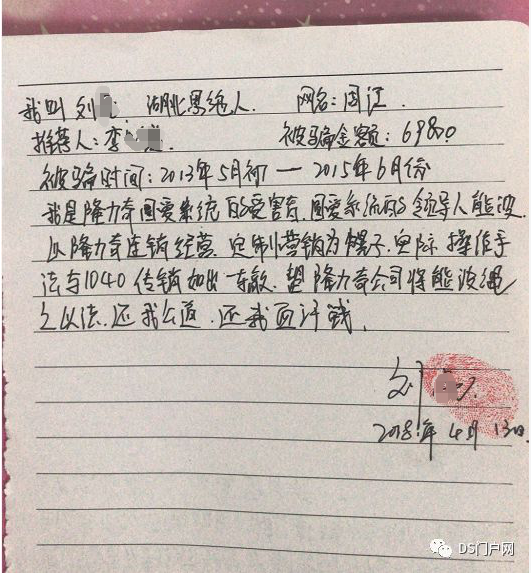 我叫刘 湖北恩施人. 网名:周江.
推荐人:李 被骗金额:69800
被骗时间:2013年5月初—2015年6月份
我是隆力奇国爱系统的受害者,国爱系统的领导人熊波
以隆力奇连锁经营、定制营销为幌子,实际操作手
法与1040传销如出一辙,望隆力奇公司将熊波绳
之以法.还我公道.还我血汗钱.
刘
2018年4月13日
DS门户网